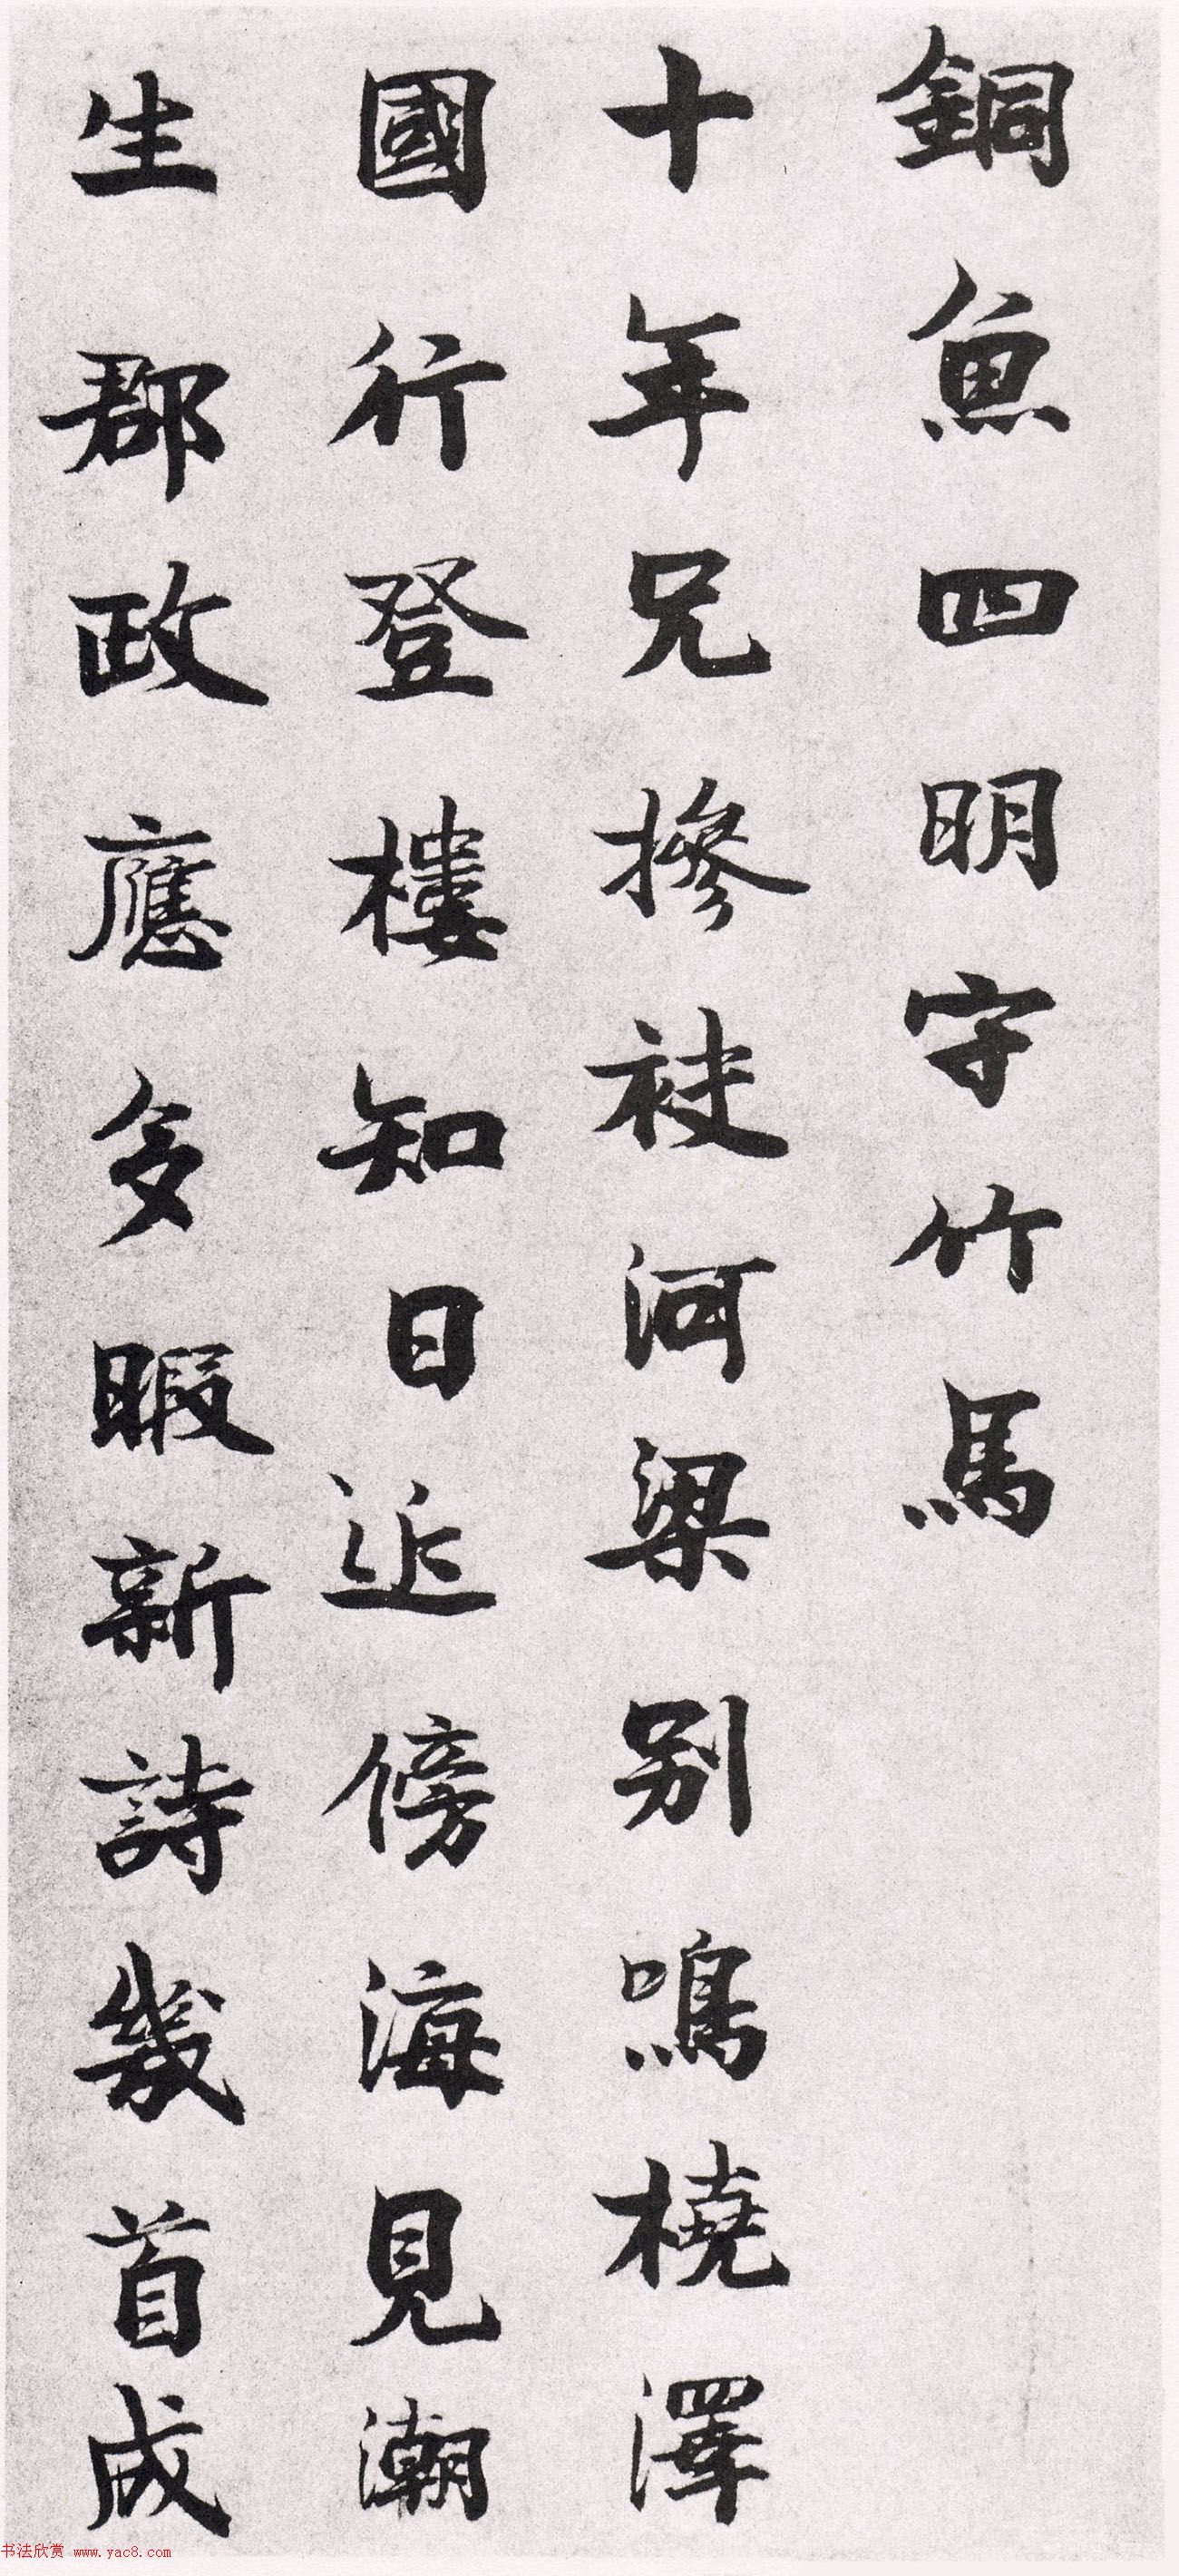 銅魚四明守竹馬
十年兄摻袂河梁别鳴橈澤
國行登樓知日近傍海見潮
生郡政應多暇新詩幾首成
书法欣赏 www.yac8.com